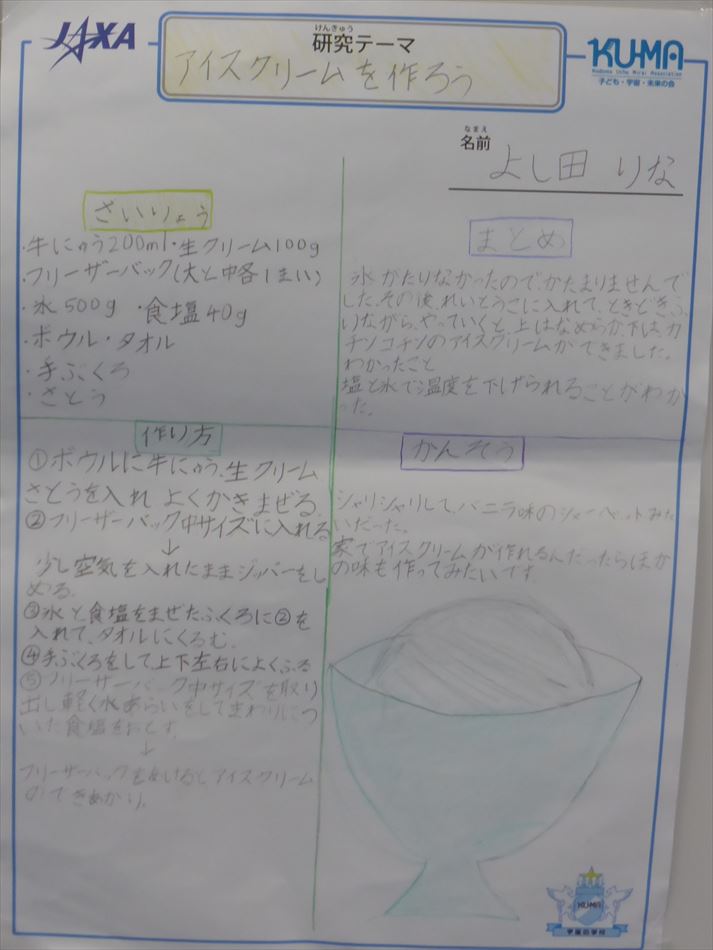 JAXA
けんきゅう
研究テーマ
アイスクリームを作ろう
KU-MA
子ども・宇宙・未来の会
なまえ
名前 よし田 りな
ざいりょう
・牛にゅう200ml・生クリーム100g
・フリーザーバック(大と中各1まい)
・氷500g ・食塩40g
・ボウル・タオル
・手ぶくろ
・さとう
まとめ
氷がたりなかったので、かたまりませんで
した。その後、れいとうこに入れて、ときどきふ
りながら、やっていくと、上はなめらか下は、カ
チンコチンのアイスクリームができました。
わかったこと
塩と氷で温度を下げられることがわか
った。
作り方
①ボウルに牛にゅう、生クリーム
さとうを入れ よくかきまぜる。
②フリーザーバック中サイズに入れる
↓
少し空気を入れたままジッパーをし
める。
③氷と食塩をまぜたふくろに②を
入れて、タオルにくるむ。
④手ぶくろをして上下左右によくふる
⑤フリーザーバック中サイズを取り
出し軽く水あらいをしてまわりにつ
いた食塩をおとす。
↓
フリーザーバックをあけるとアイスクリーム
のできあがり。
かんそう
シャリシャリして、バニラ味のシャーベットみた
いだった。
家でアイスクリームが作れるんだったらほか
の味も作ってみたいです。
KU-MA
宇宙の学校